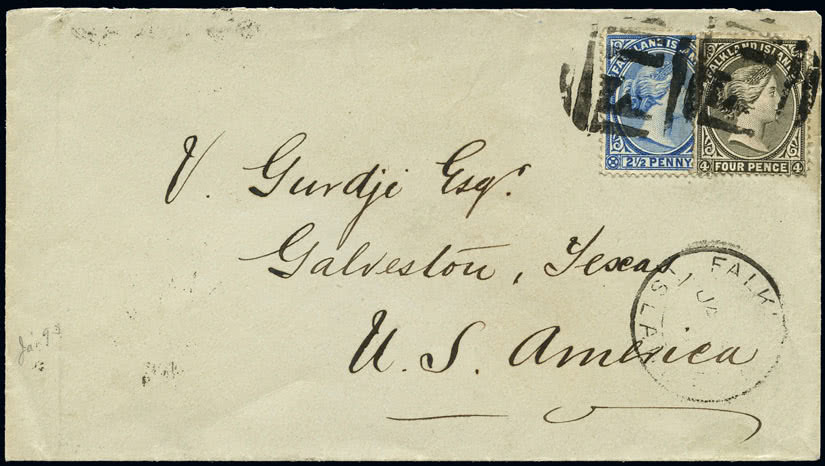 FALKLAND ISLAN
2½ PENNY
FALKLAND ISLAN
4 FOUR PENCE 4
V. Gurdji Esqr.
Galveston, Texas
U. S. America
FALK
JA
ISLA